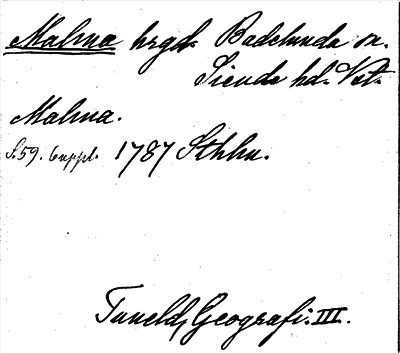 Malma hrgd. Badelunda sn.
Siende hd. Vstm.
Malma.
S. 59. 6 uppl. 1787 Sthlm.
Tuneld, Geografi. III.